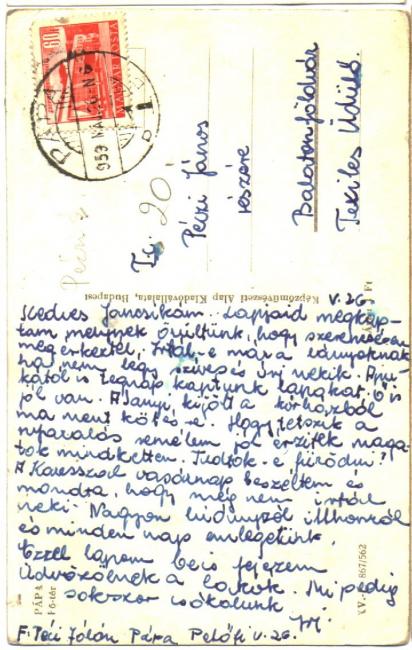 MAGYAR POSTA
60f
PÁPA
959 MÁJ. 26
Ifj.
20
Péczi János
részére
Balatonföldvár
Textiles Üdülő
Képzőművészeti Alap Kiadóvállalata, Budapest
V. 26.
Kedves Jancsikám. Lapjaid megkap-
tam melynek örültünk, hogy szerencsésen
megérkeztél, írtál-e már a lányoknak
ha nem légy szíves és írj nekik. Apu-
kától is tegnap kaptunk lapokat, ő is
jól van. A Sanyi, kijött a kórházból
ma ment kötés-e. Hogy tetszik a
nyaralás remélem jól érzitek maga-
tok mindketten. Tudtok-e fürödni?
A vasárnap beszéltem és
mondta, hogy még nem írtál
neki. Nagyon hiányzol itthonról
és minden nap emlegetünk.
Ezzel lapom be is fejezem
üdvözölnek a Mi pedig
sokszor csókolunk
PÁPA
Fő-tér
XV.-867/562
F. Jolán Pápa Petőfi V. 26.